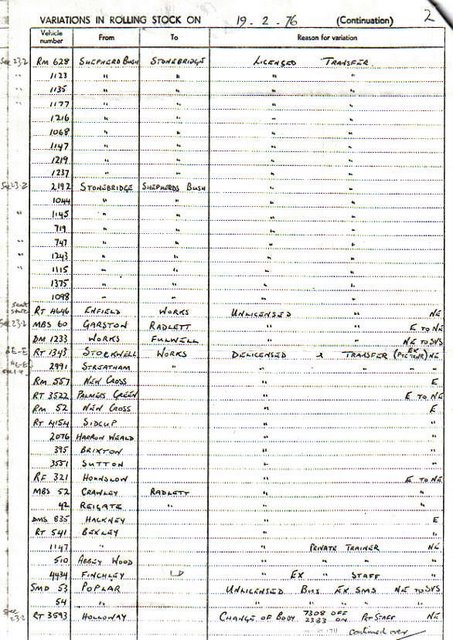 VARIATIONS IN ROLLING STOCK ON 19.2.76 (Continuation) 2
Vehicle number From To Reason for variation
See 23.2 RM 628 SHEPHERDS BUSH STONEBRIDGE LICENSED TRANSFER
" 1123 " " " "
" 1135 " " " "
" 1177 " " " "
1216 " " " "
1068 " " " "
1147 " " " "
1219 " " " "
1237 " " " "
See 23.2 2192 STONEBRIDGE SHEPHERDS BUSH " "
1044 " " " "
" 1145 " " " "
719 " " " "
" 747 " " " "
" 1243 " " " "
" 1115 " " " "
1375 " " " "
1098 " " " "
RT 4646 ENFIELD WORKS UNLICENSED " NE
See 23.2 MBS 60 GARSTON RADLETT " " E TO NE
DM 1233 WORKS FULWELL " " NE TO SNS
RT 1343 STOCKWELL WORKS DELICENSED & TRANSFER NE
2991 STREATHAM " " " "
RM 557 NEW CROSS " E
RT 3522 PALMERS GREEN " E TO NE
RM 52 NEW CROSS " E
RT 4154 SIDCUP " "
2076 HARROW WEALD " "
395 BRIXTON " "
3551 SUTTON " "
RF 321 HOUNSLOW " E TO NE
MBS 52 CRAWLEY RADLETT " "
42 REIGATE " " "
DMS 835 HACKNEY " E
RT 541 BEXLEY " "
1147 " " PRIVATE TRAINER NE
510 ABBEY WOOD " " " "
4434 FINCHLEY " EX " STAFF "
SMD 53 POPLAR UNLICENSED BUS EX SMS NE TO SNS
54 " " " " "
23.2 RT 3593 HOLLOWAY CHANGE OF BODY 7308 OFF 2383 ON STAFF NE
continued over